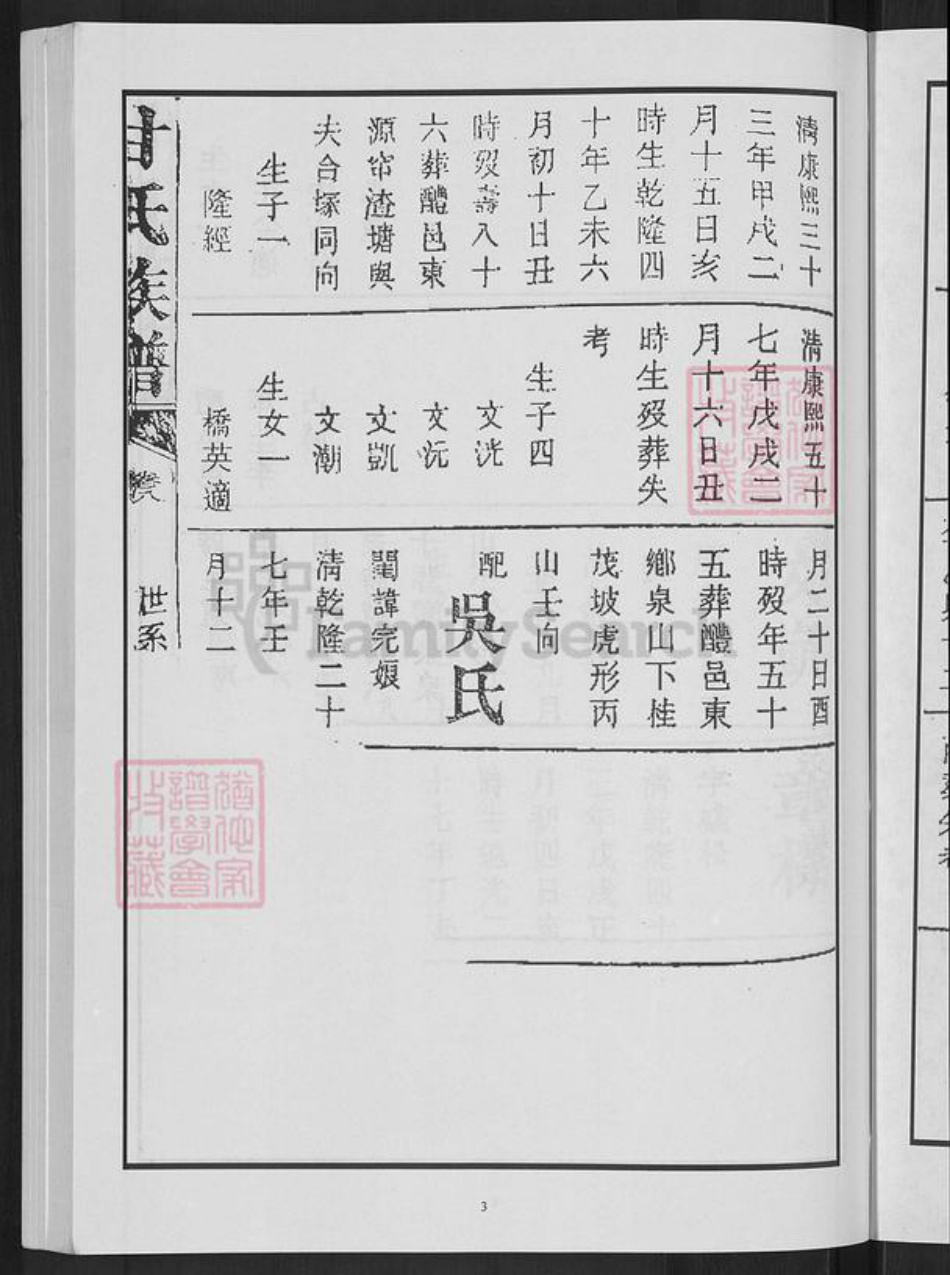 清康熙三十
三年甲戌二
月十五日亥
時生乾隆四
十年乙未六
月初十日丑
時歿壽八十
六葬醴邑東
源帘渣塘與
夫合塚同向
生子一
隆經
清康熙五十
七年戊戌二
月十六日丑
時生歿葬失
考
生子四
文洸
文沅
文凱
文潮
生女一
橋英適
月二十日酉
時歿年五十
五葬醴邑東
鄉泉山下桂
茂坡虎形丙
山壬向
配
吳氏
閨諱完娘
清乾隆二十
七年壬
月十二
甘氏族譜
世系
FamilySearch
3